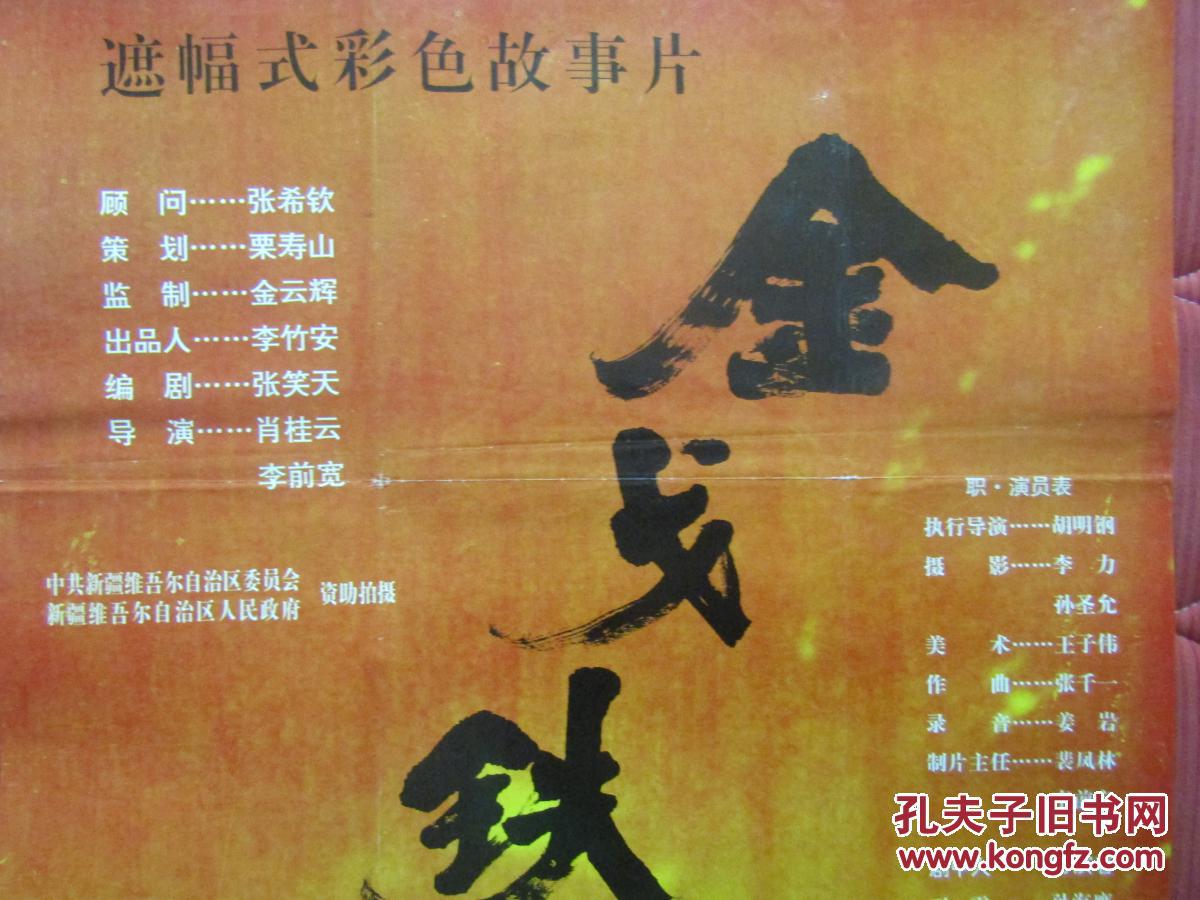 遮幅式彩色故事片
顾 问……张希钦
策 划……栗寿山
监 制……金云辉
出品人……李竹安
编 剧……张笑天
导 演……肖桂云
李前宽
中共新疆维吾尔自治区委员会
新疆维吾尔自治区人民政府
资助拍摄
金戈铁
职·演员表
执行导演……胡明钢
摄 影……李 力
孙圣允
美 术……王子伟
作 曲……张千一
录 音……姜 岩
制片主任……裴凤林
孔夫子旧书网
www.kongfz.com